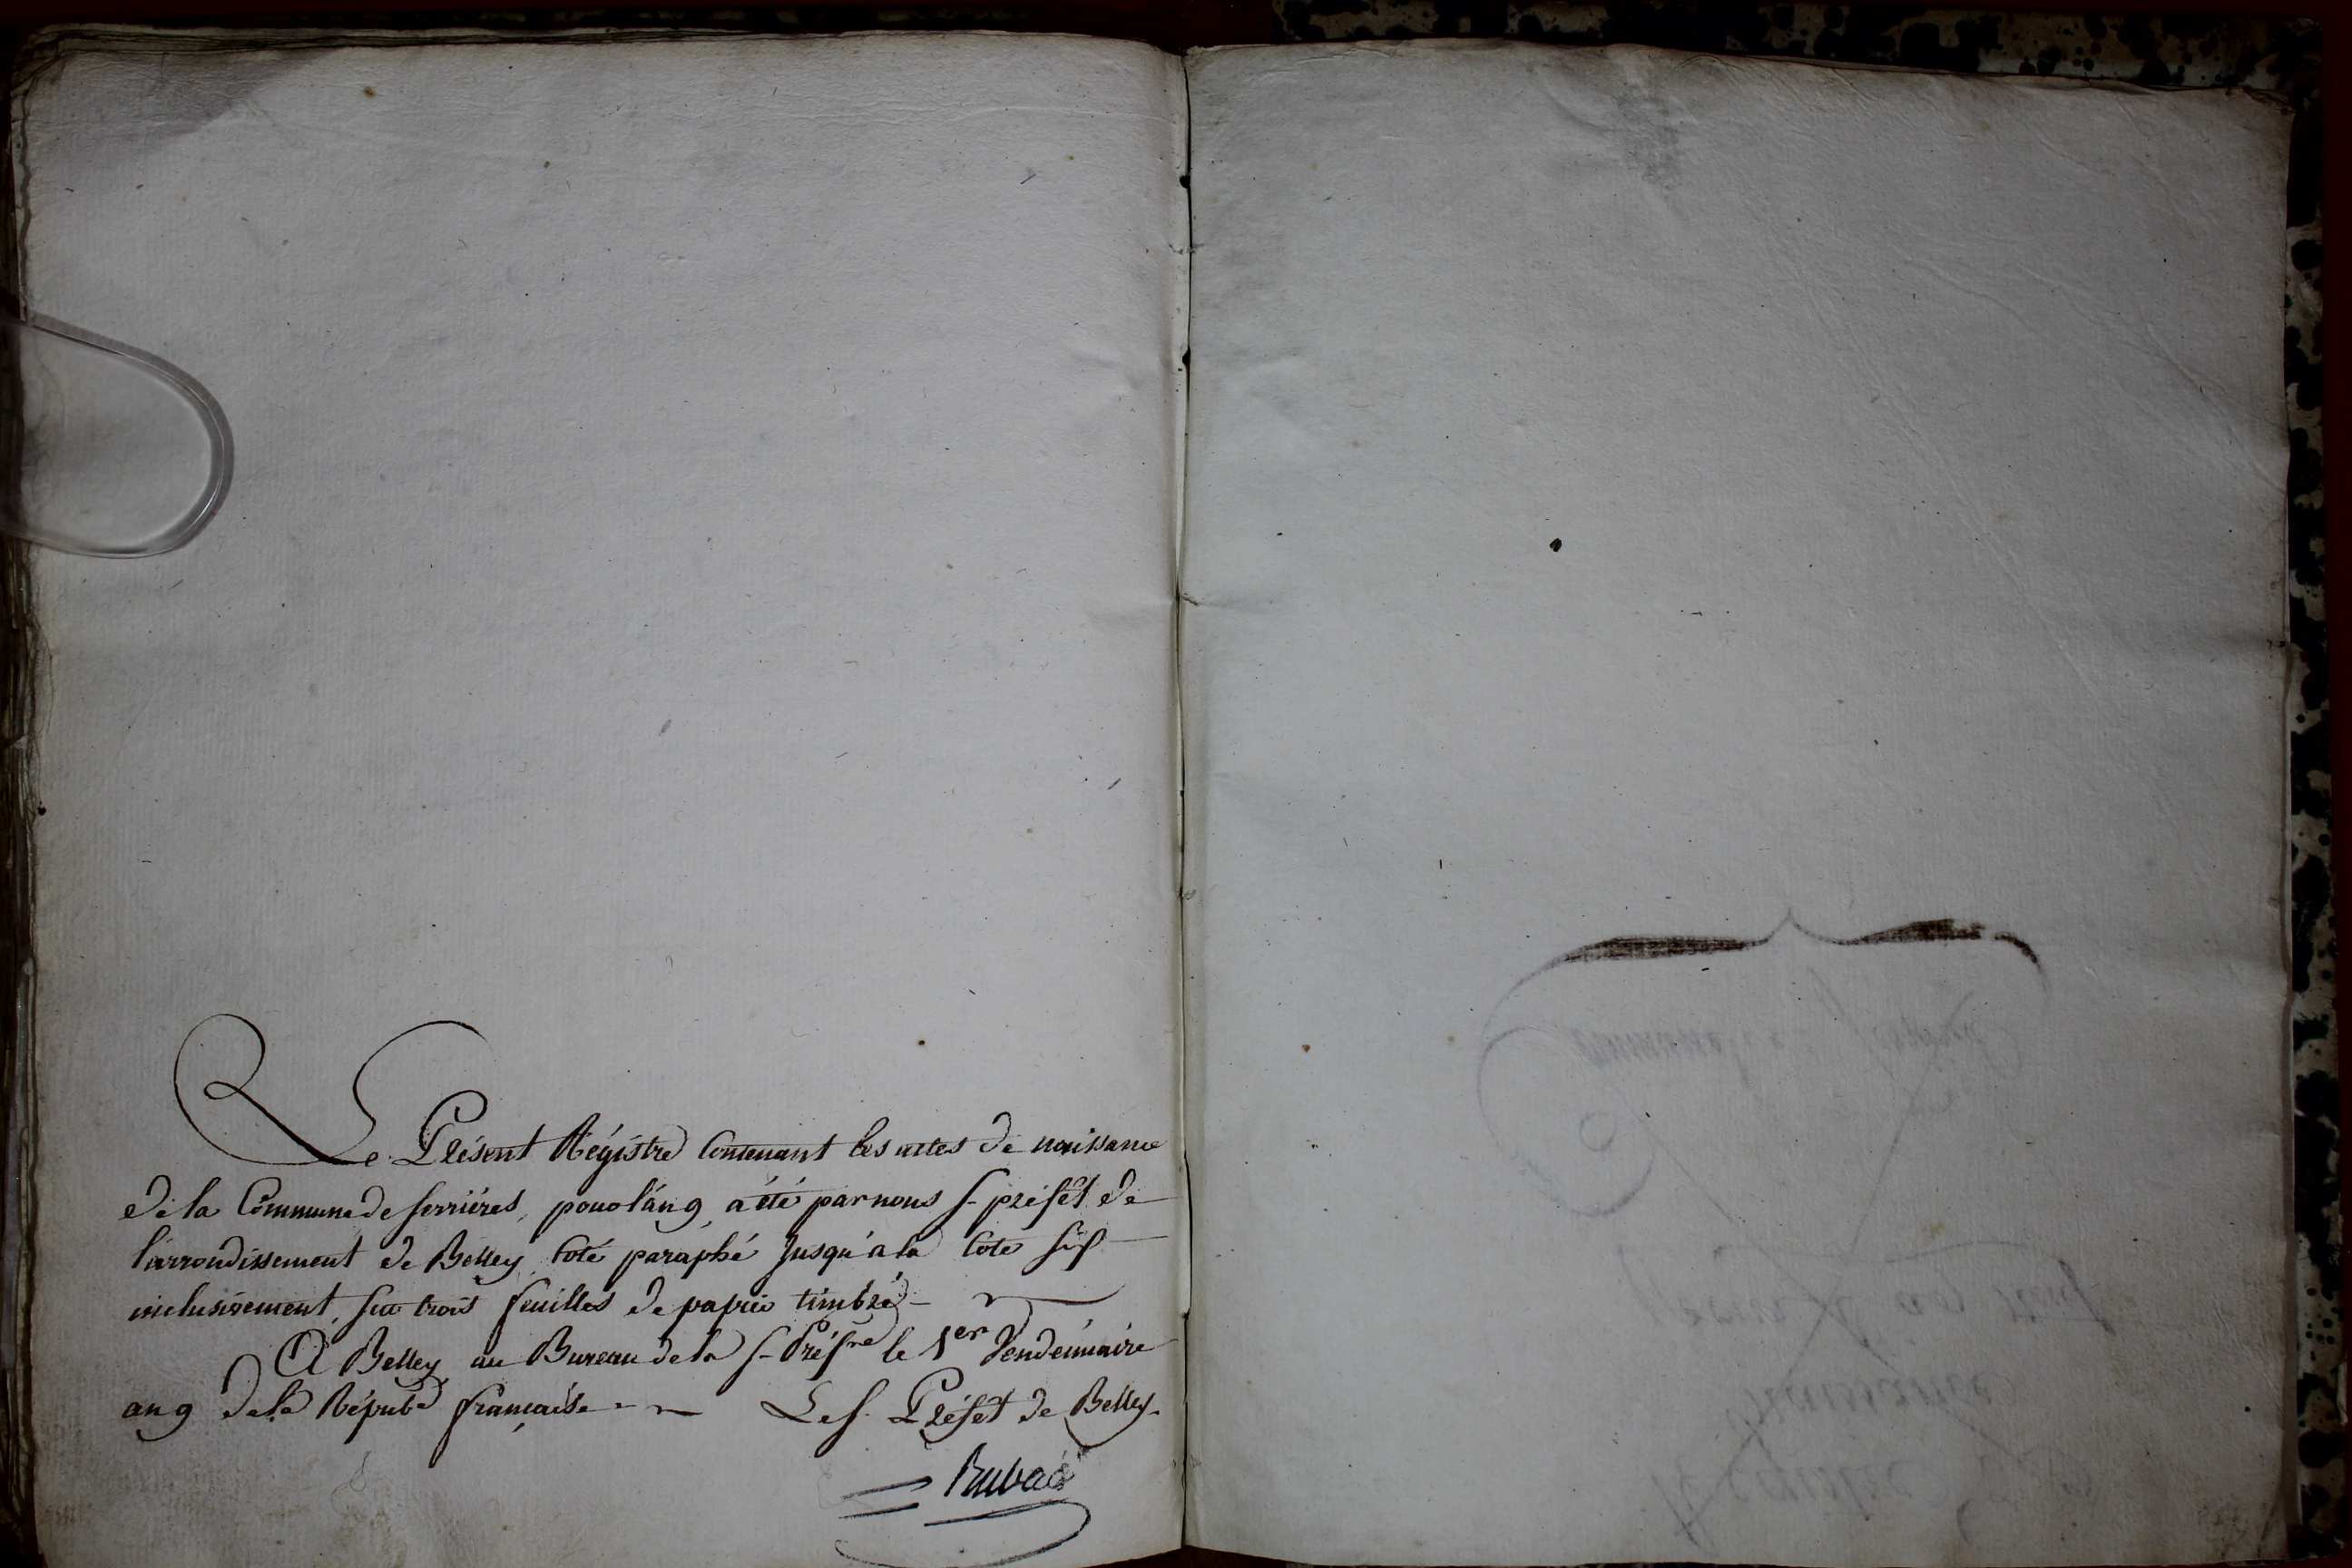 Le Présent Régistre Contenant les actes de naissance
de la Commune de serriéres, pour l'an 9, a été par nous s-préfet de
l'arrondissement de Belley, Coté paraphé Jusqu'a la Cote six
inclusivement, sur trois feuilles de papier timbré -
A Belley au Bureau de la s-Préf.re le 1er Vendémiaire
an 9 de la Répub.e française -
Le s. Préfet de Belley.
Rubat